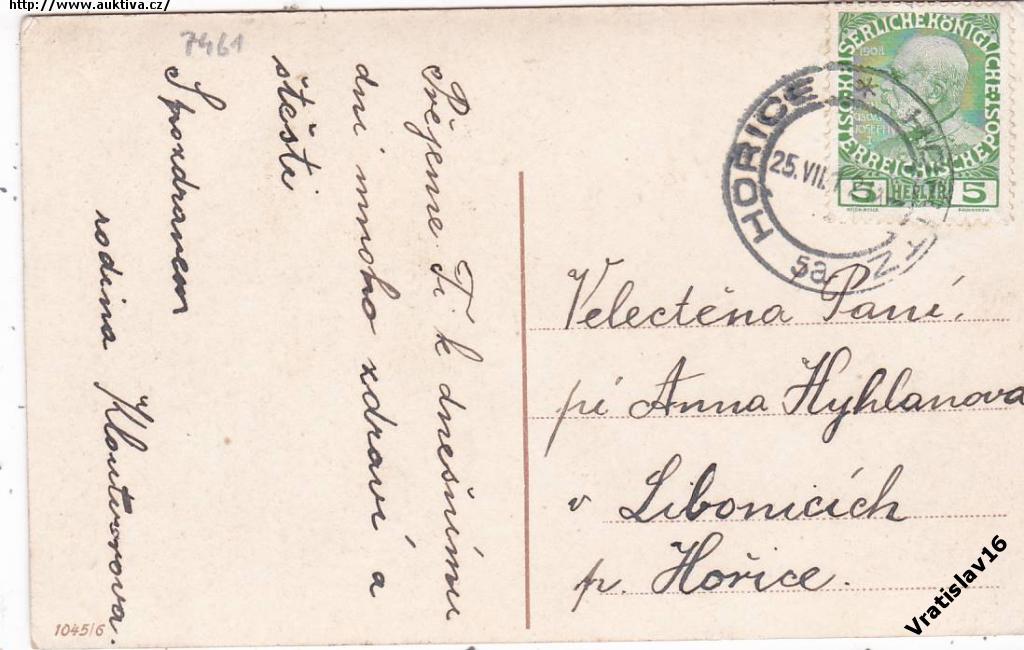 http://www.auktiva.cz/
7461
Přejeme Ti k dnešnímu
dni mnoho zdraví a
štěstí
S pozdravem
rodina
1045/6
KAISERLICHEKÖNIGLICHE
1908
ÖSTERREICHISCHE POST
5 HELLER 5
HOŘICE
25.VII.
5a
Velectěna Paní,
pí Anna Hyhlanova
v Libonicích
p. Hořice.
Vratislav16